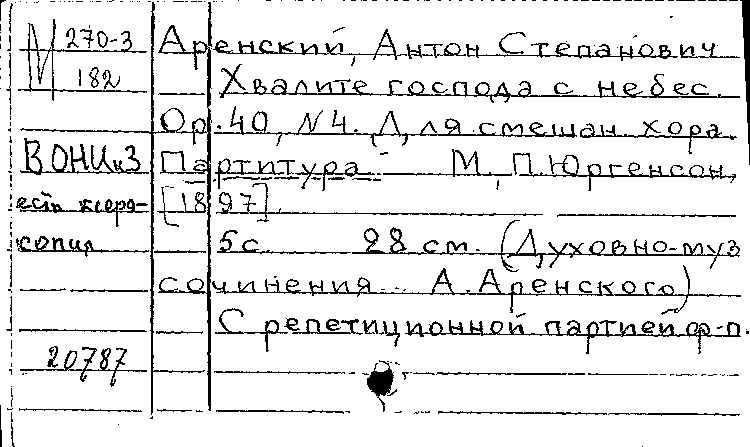 М 270-3
182
Аренский, Антон Степанович
Хвалите господа с небес.
Op. 40, №4. Для смешан. хора.
ВОНИиЗ
Партитура. М., П. Юргенсон,
есть ксеро-
[1897].
копия
5 с. 28 см. (Духовно-муз
сочинения... А. Аренского)
С репетиционной партией ф-п.
20787